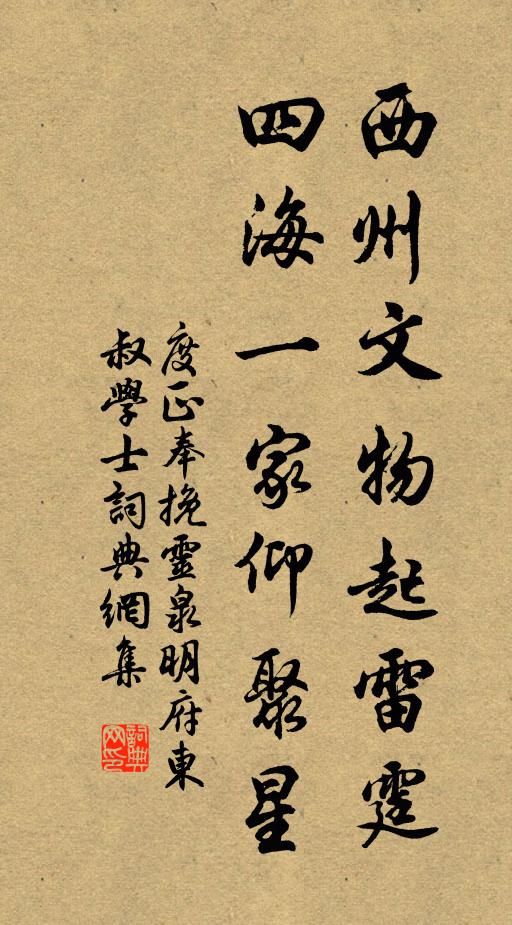 西州文物起雷霆
四海一家仰聚星
度正奉挽靈泉明府東
叔學士詞典網集
詞典
网印